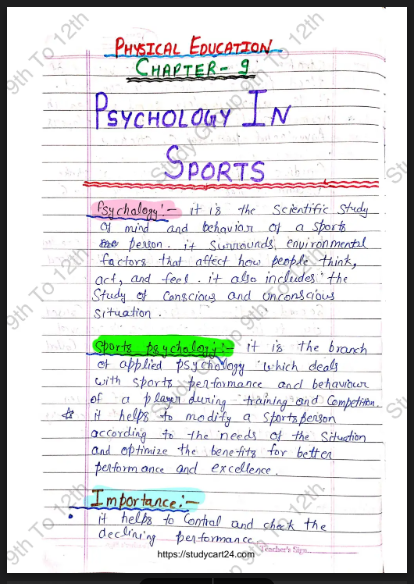 PHYSICAL EDUCATION
CHAPTER - 9
PSYCHOLOGY IN
SPORTS
Psychology :- it is the Scientific Study
of mind and behavior of a sports
person. it surrounds environmental
factors that affect how people think,
act, and feel. it also includes the
Study of Conscious and unconscious
situation.
Sports psychology :- it is the branch
of applied psychology which deals
with sports performance and behaviour
of a player during training and Competition.
it helps to modify a Sportsperson
according to the needs of the Situation
and optimize the benefits for better
performance and excellence.
Importance :-
• it helps to Control and check the
declining performance
https://studycart24.com
Teacher's Sign
Study Group 9th To 12th